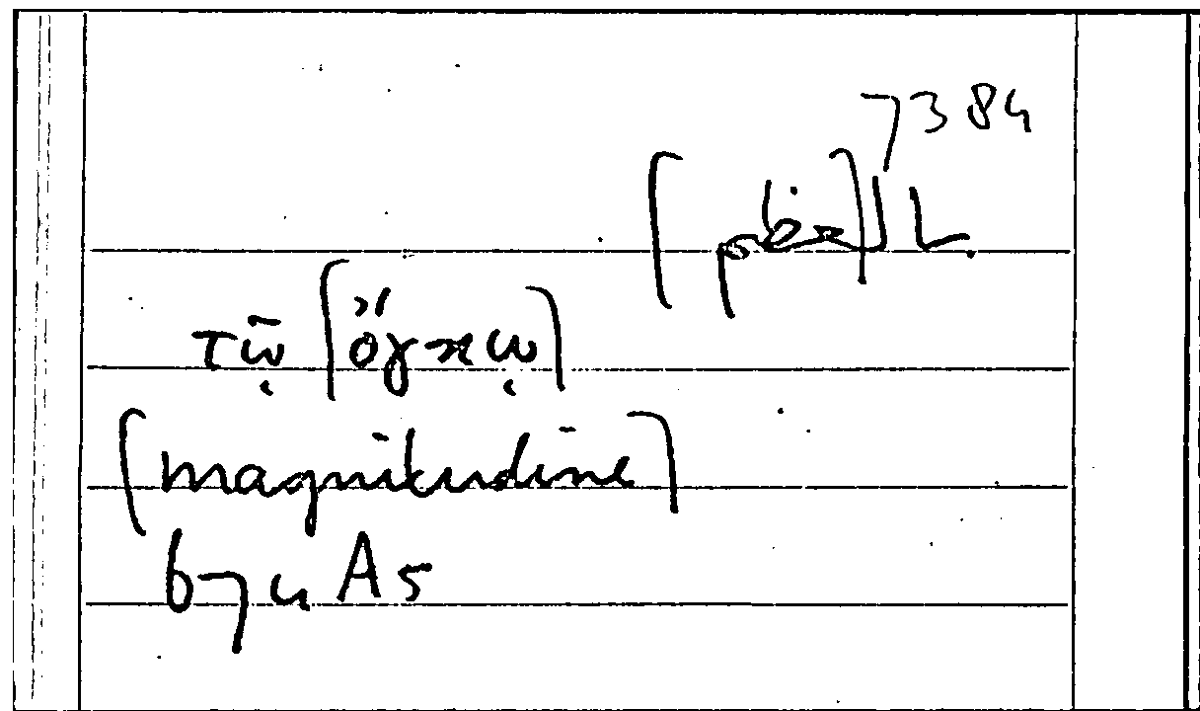 7384
τῷ [ὄγκῳ]
[magnitudine]
674 A5